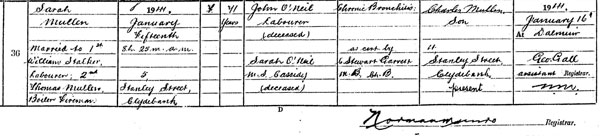 Sarah
Mullen
Married to 1st
William Stalker
Labourer; 2nd
Thomas Mullen
Boiler Fireman
36
1911.
January
Fifteenth
8h. 25m. a.m.
5
Stanley Street,
Clydebank
41
Years
John O'Neil
Labourer
(deceased)
Sarah O'Neil
M.S. Cassidy
(deceased)
Chronic Bronchitis
as cert by
Stewart
M.B. Ch.B.
Charles Mullen
Son
Stanley Street
Clydebank
present
January 16th
At Dalmuir
Geo. Gall
assistant Registrar.
D
Norman
Registrar.